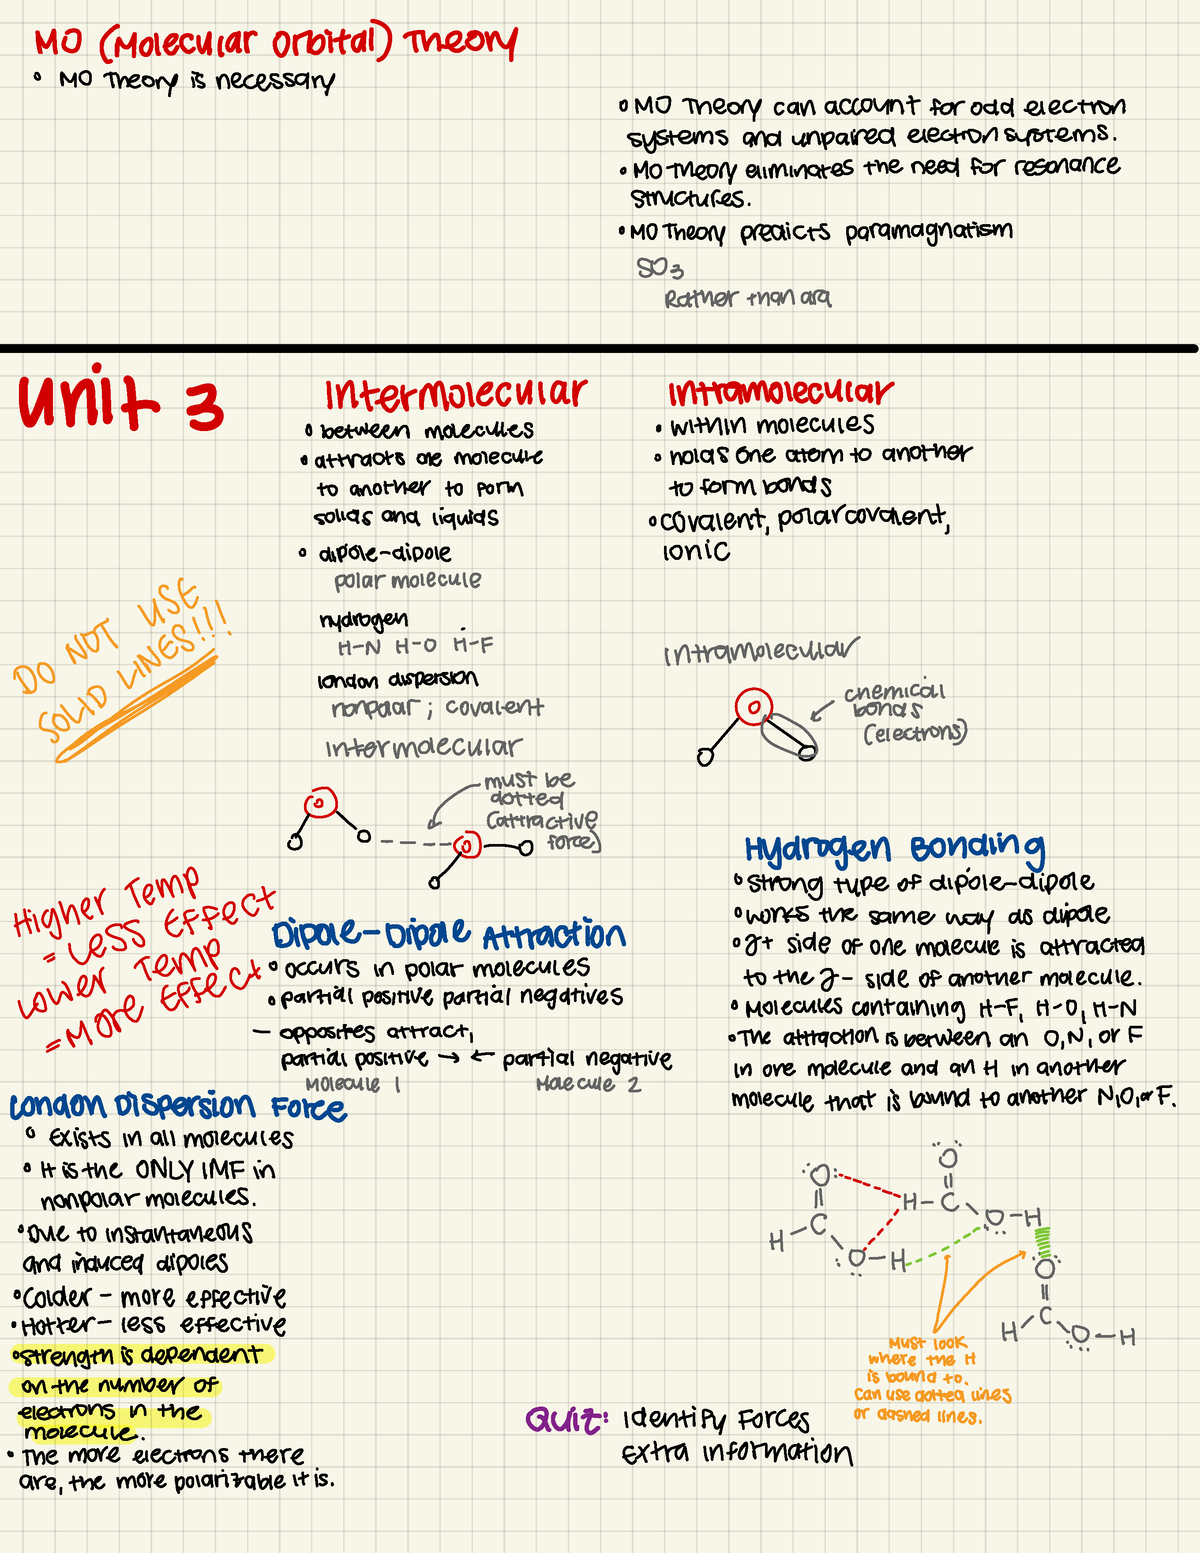 MO (Molecular Orbital) Theory
• MO Theory is necessary
• MO Theory can account for odd electron
systems and unpaired electron systems.
• MO Theory eliminates the need for resonance
structures.
• MO Theory predicts paramagnatism
SO₃
Rather than ara
Unit 3
Intermolecular
• between molecules
• attracts one molecule
to another to form
solids and liquids
• dipole-dipole
polar molecule
hydrogen
H-N H-O H-F
london dispersion
nonpolar ; covalent
intermolecular
must be
dotted
(attractive
force)
O
O
Intramolecular
• within molecules
• holds one atom to another
to form bonds
• covalent, polar covalent,
ionic
intramolecular
O
chemical
bonds
(electrons)
DO NOT USE
SOLID LINES!!!
Higher Temp
= Less Effect
Lower Temp
= More Effect
Dipole-Dipole Attraction
• occurs in polar molecules
• partial positive partial negatives
- opposites attract,
partial positive → ← partial negative
Molecule 1 Molecule 2
Hydrogen Bonding
• Strong type of dipole-dipole
• works the same way as dipole
• δ+ side of one molecule is attracted
to the δ- side of another molecule.
• Molecules containing H-F, H-O, H-N
• The attraction is between an O, N, or F
in one molecule and an H in another
molecule that is bound to another N, O, or F.
London Dispersion Force
• Exists in all molecules
• It is the ONLY IMF in
nonpolar molecules.
• Due to instantaneous
and induced dipoles
• Colder - more effective
• Hotter - less effective
• Strength is dependent
on the number of
electrons in the
molecule.
• The more electrons there
are, the more polarizable it is.
O
O
H-C
C
O-H
H
O-H
O
C
H
O-H
Must look
where the H
is bound to.
Can use dotted lines
or dashed lines.
Quiz: Identify Forces
Extra information